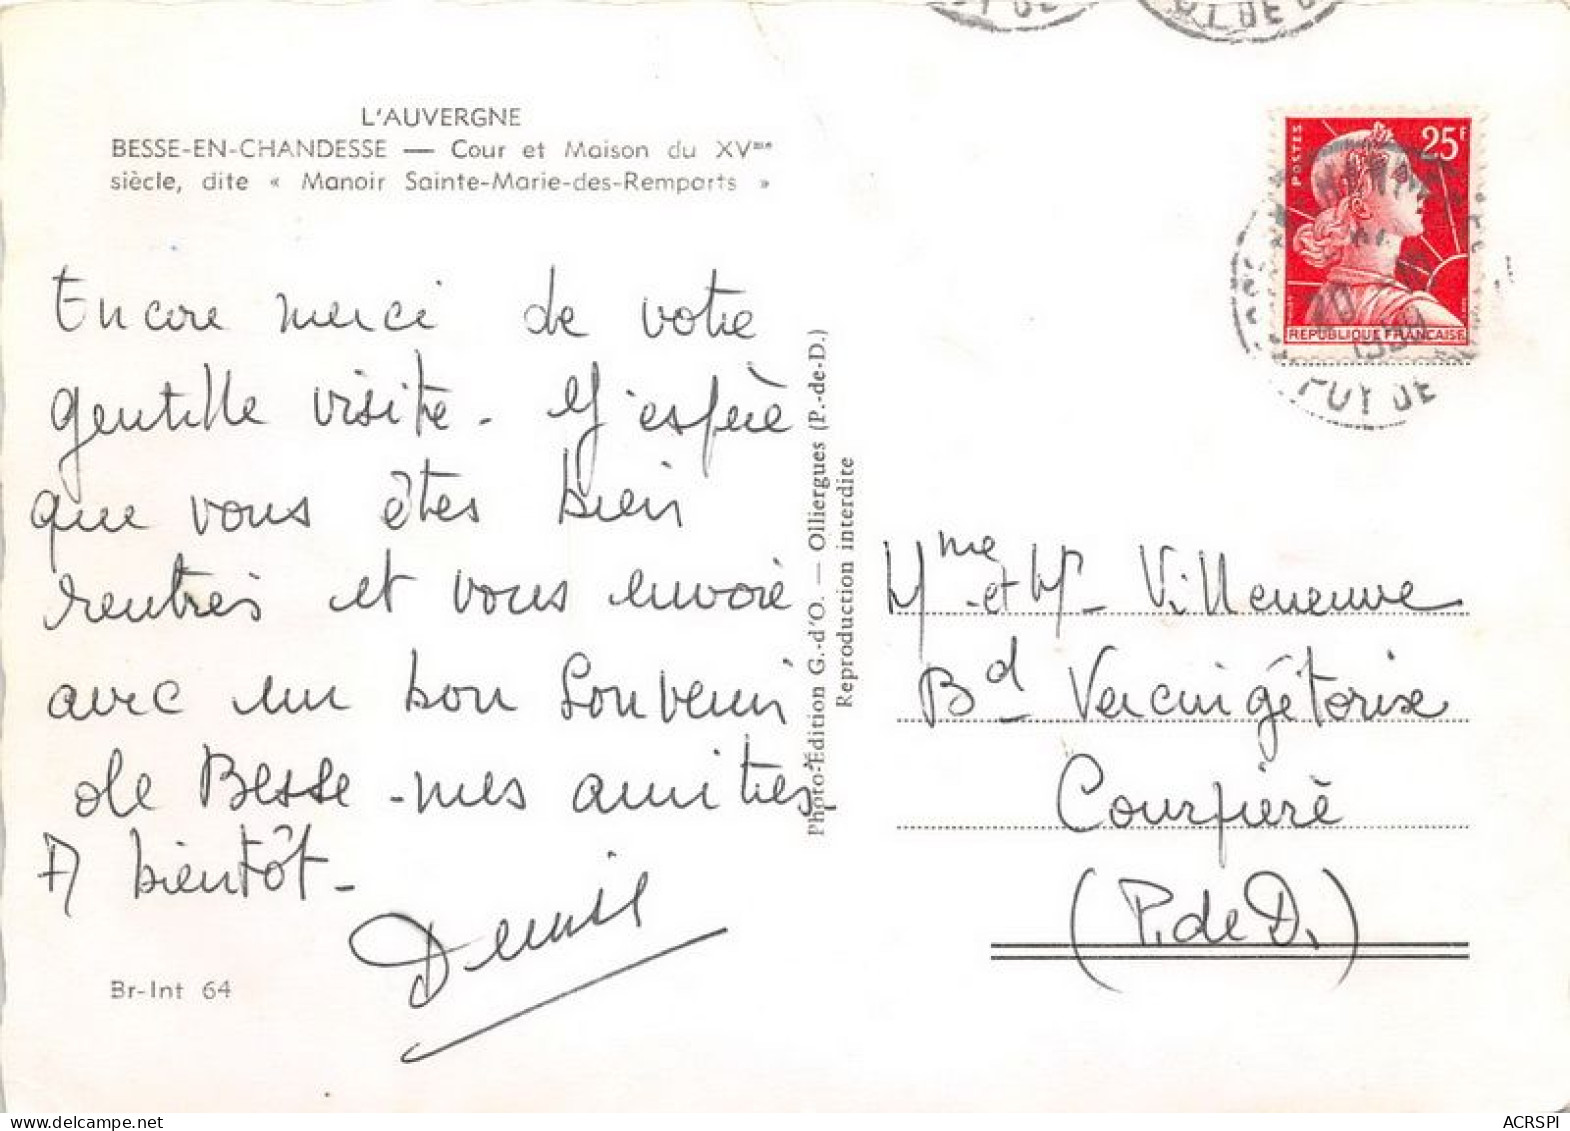 L'AUVERGNE
BESSE-EN-CHANDESSE — Cour et Maison du XVme
siècle, dite « Manoir Sainte-Marie-des-Remparts »
Encore merci de votre
gentille visite - J'espère
que vous êtes bien
rentrés et vous envoie
avec un bon souvenir
de Besse - mes amitiés.
A bientôt -
Denise
Br-Int 64
Photo-Édition G.-d'O. — Olliergues (P.-de-D.)
Reproduction interdite
POSTES
25F
REPUBLIQUE FRANCAISE
PUY DE
Mme et Mr Villeneuve
Bd Vercingétorixe
Courpière
(P. de D.)
delcampe.net
ACRSPI